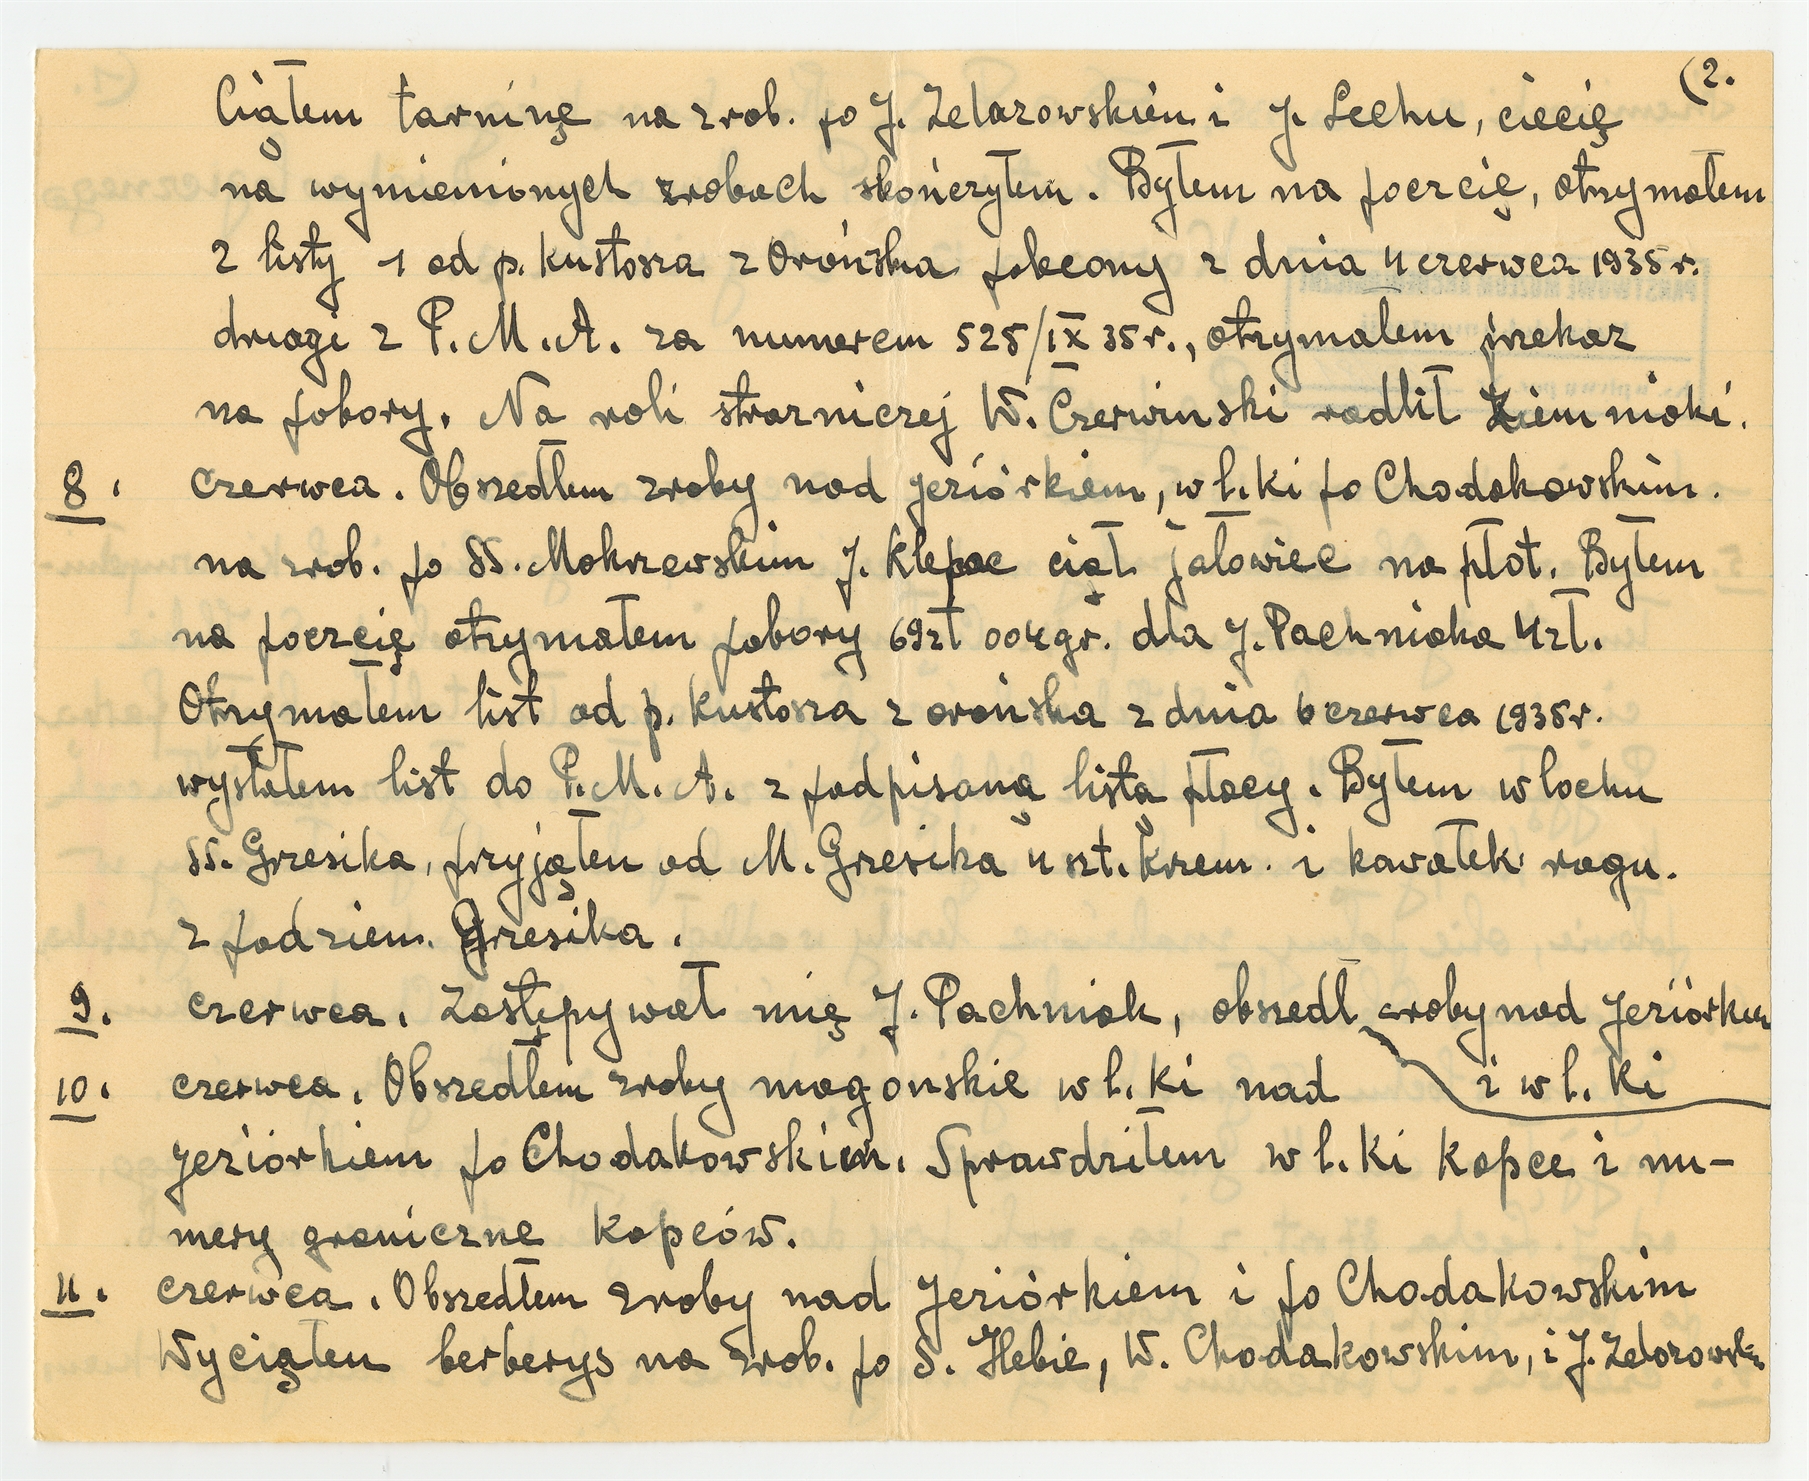 (2.
Ciąłem tarninę na zrob. po J. Zelazowskiem i J. Lechu, cięcię
na wymienionych zrobach skończyłem. Byłem na poczcię, otrzymałem
2 listy 1 od p. kustosza z Orońska polecony z dnia 4 czerwca 1935 r.
drugi z P.M.A. za numerem 525/IX 35 r., otrzymałem przekaz
na pobory. Na roli strazniczej W. Czerwinski radlił Ziemniaki.
8. czerwca. Obszedłem zroby nad jeziórkiem, w l. ki po Chodakowskim.
na zrob. po SS. Mokrzewskim J. Klepac ciął jałowiec na płot. Byłem
na poczcię otrzymałem pobory 69 zł 004 gr. dla J. Pachniaka 4 zł.
Otrzymałem list od p. kustosza z orońska z dnia 6 czerwca 1935 r.
wysłałem list do P.M.A. z podpisaną listą płacy. Byłem w lochu
SS. Grzesika, przyjąłen od M. Grzesika 4 szt. krzem. i kawałek rogu.
z podziem. Grzesika.
9. czerwca. Zastępywał mię J. Pachniak, obszedł zroby nad Jeziórkiem
i w l. ki
10. czerwca. Obszedłem zroby magońskie w l. ki nad
jeziórkiem po Chodakowskim. Sprawdziłem w l. ki kopce i nu-
mery graniczne kopców.
11. czerwca. Obszedłem zroby nad Jeziórkiem i po Chodakowskim
Wyciąłen berberys na zrob. po S. Hebie, W. Chodakowskim, i J. Zelozowskim